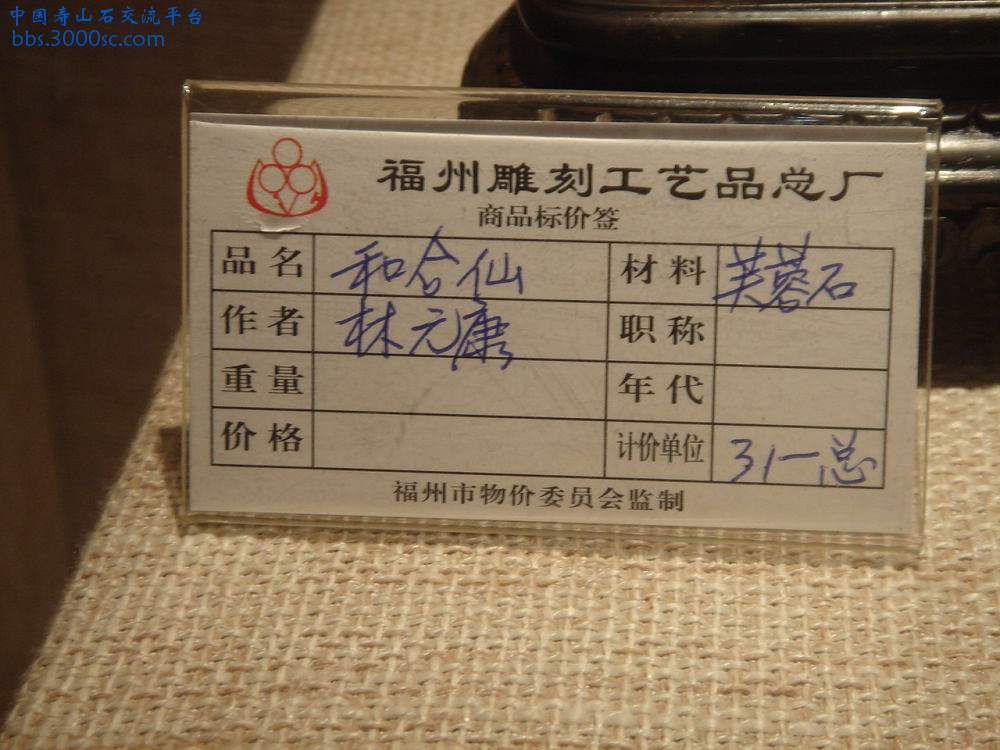 中国寿山石交流平台
bbs.3000sc.com
福州雕刻工艺品总厂
商品标价签
品名 和合仙 材料 芙蓉石
作者 林元康 职称
重量 年代
价格 计价单位 31一总
福州市物价委员会监制